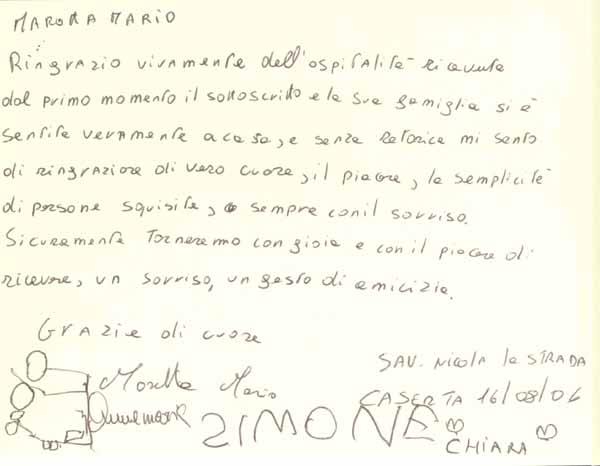 MAROTTA MARIO
RINGRAZIO vivamente dell'ospitalità ricevuta
dal primo momento il sottoscritto e la sua famiglia si è
sentita veramente a casa, e senza retorica mi sento
di ringraziare di vero cuore, il piacere, la semplicità
di persone squisite, sempre con il sorriso.
Sicuramente Torneremo con gioia e con il piacere di
ricevere, un sorriso, un gesto di amicizia.
Grazie di cuore
SAN. NICOLA la STRADA
Marotta Mario
CASERTA 16/08/06
SIMONE
CHIARA